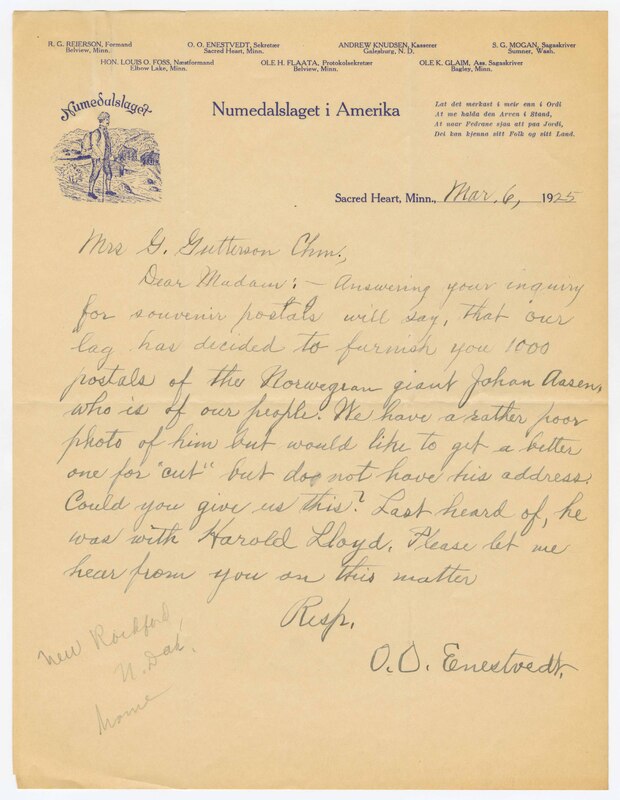 R. G. REIERSON, Formand
Belview, Minn.
O. O. ENESTVEDT, Sekretær
Sacred Heart, Minn.
ANDREW KNUDSEN, Kasserer
Galesburg, N. D.
S. G. MOGAN, Sagaskriver
Sumner, Wash.
HON. LOUIS O. FOSS, Næstformand
Elbow Lake, Minn.
OLE H. FLAATA, Protokolsekretær
Belview, Minn.
OLE K. GLAIM, Ass. Sagaskriver
Bagley, Minn.
Numedalslaget
Numedalslaget i Amerika
Lat det merkast i meir enn i Ordi
At me halda den Arven i Stand,
At naar Fedrane sjaa att paa Jordi,
Dei kan kjenna sitt Folk og sitt Land.
Sacred Heart, Minn., Mar. 6, 1925
Mrs G. Gutterson Chm.,
Dear Madam: - Answering your inquiry
for souvenir postals will say, that our
lag has decided to furnish you 1000
postals of the Norwegian giant Johan Aasen,
who is of our people. We have a rather poor
photo of him but would like to get a better
one for "cut" but do not have his address.
Could you give us this? Last heard of, he
was with Harold Lloyd. Please let me
hear from you on this matter
Resp.
O. O. Enestvedt.
New Rockford,
N. Dak.
Home